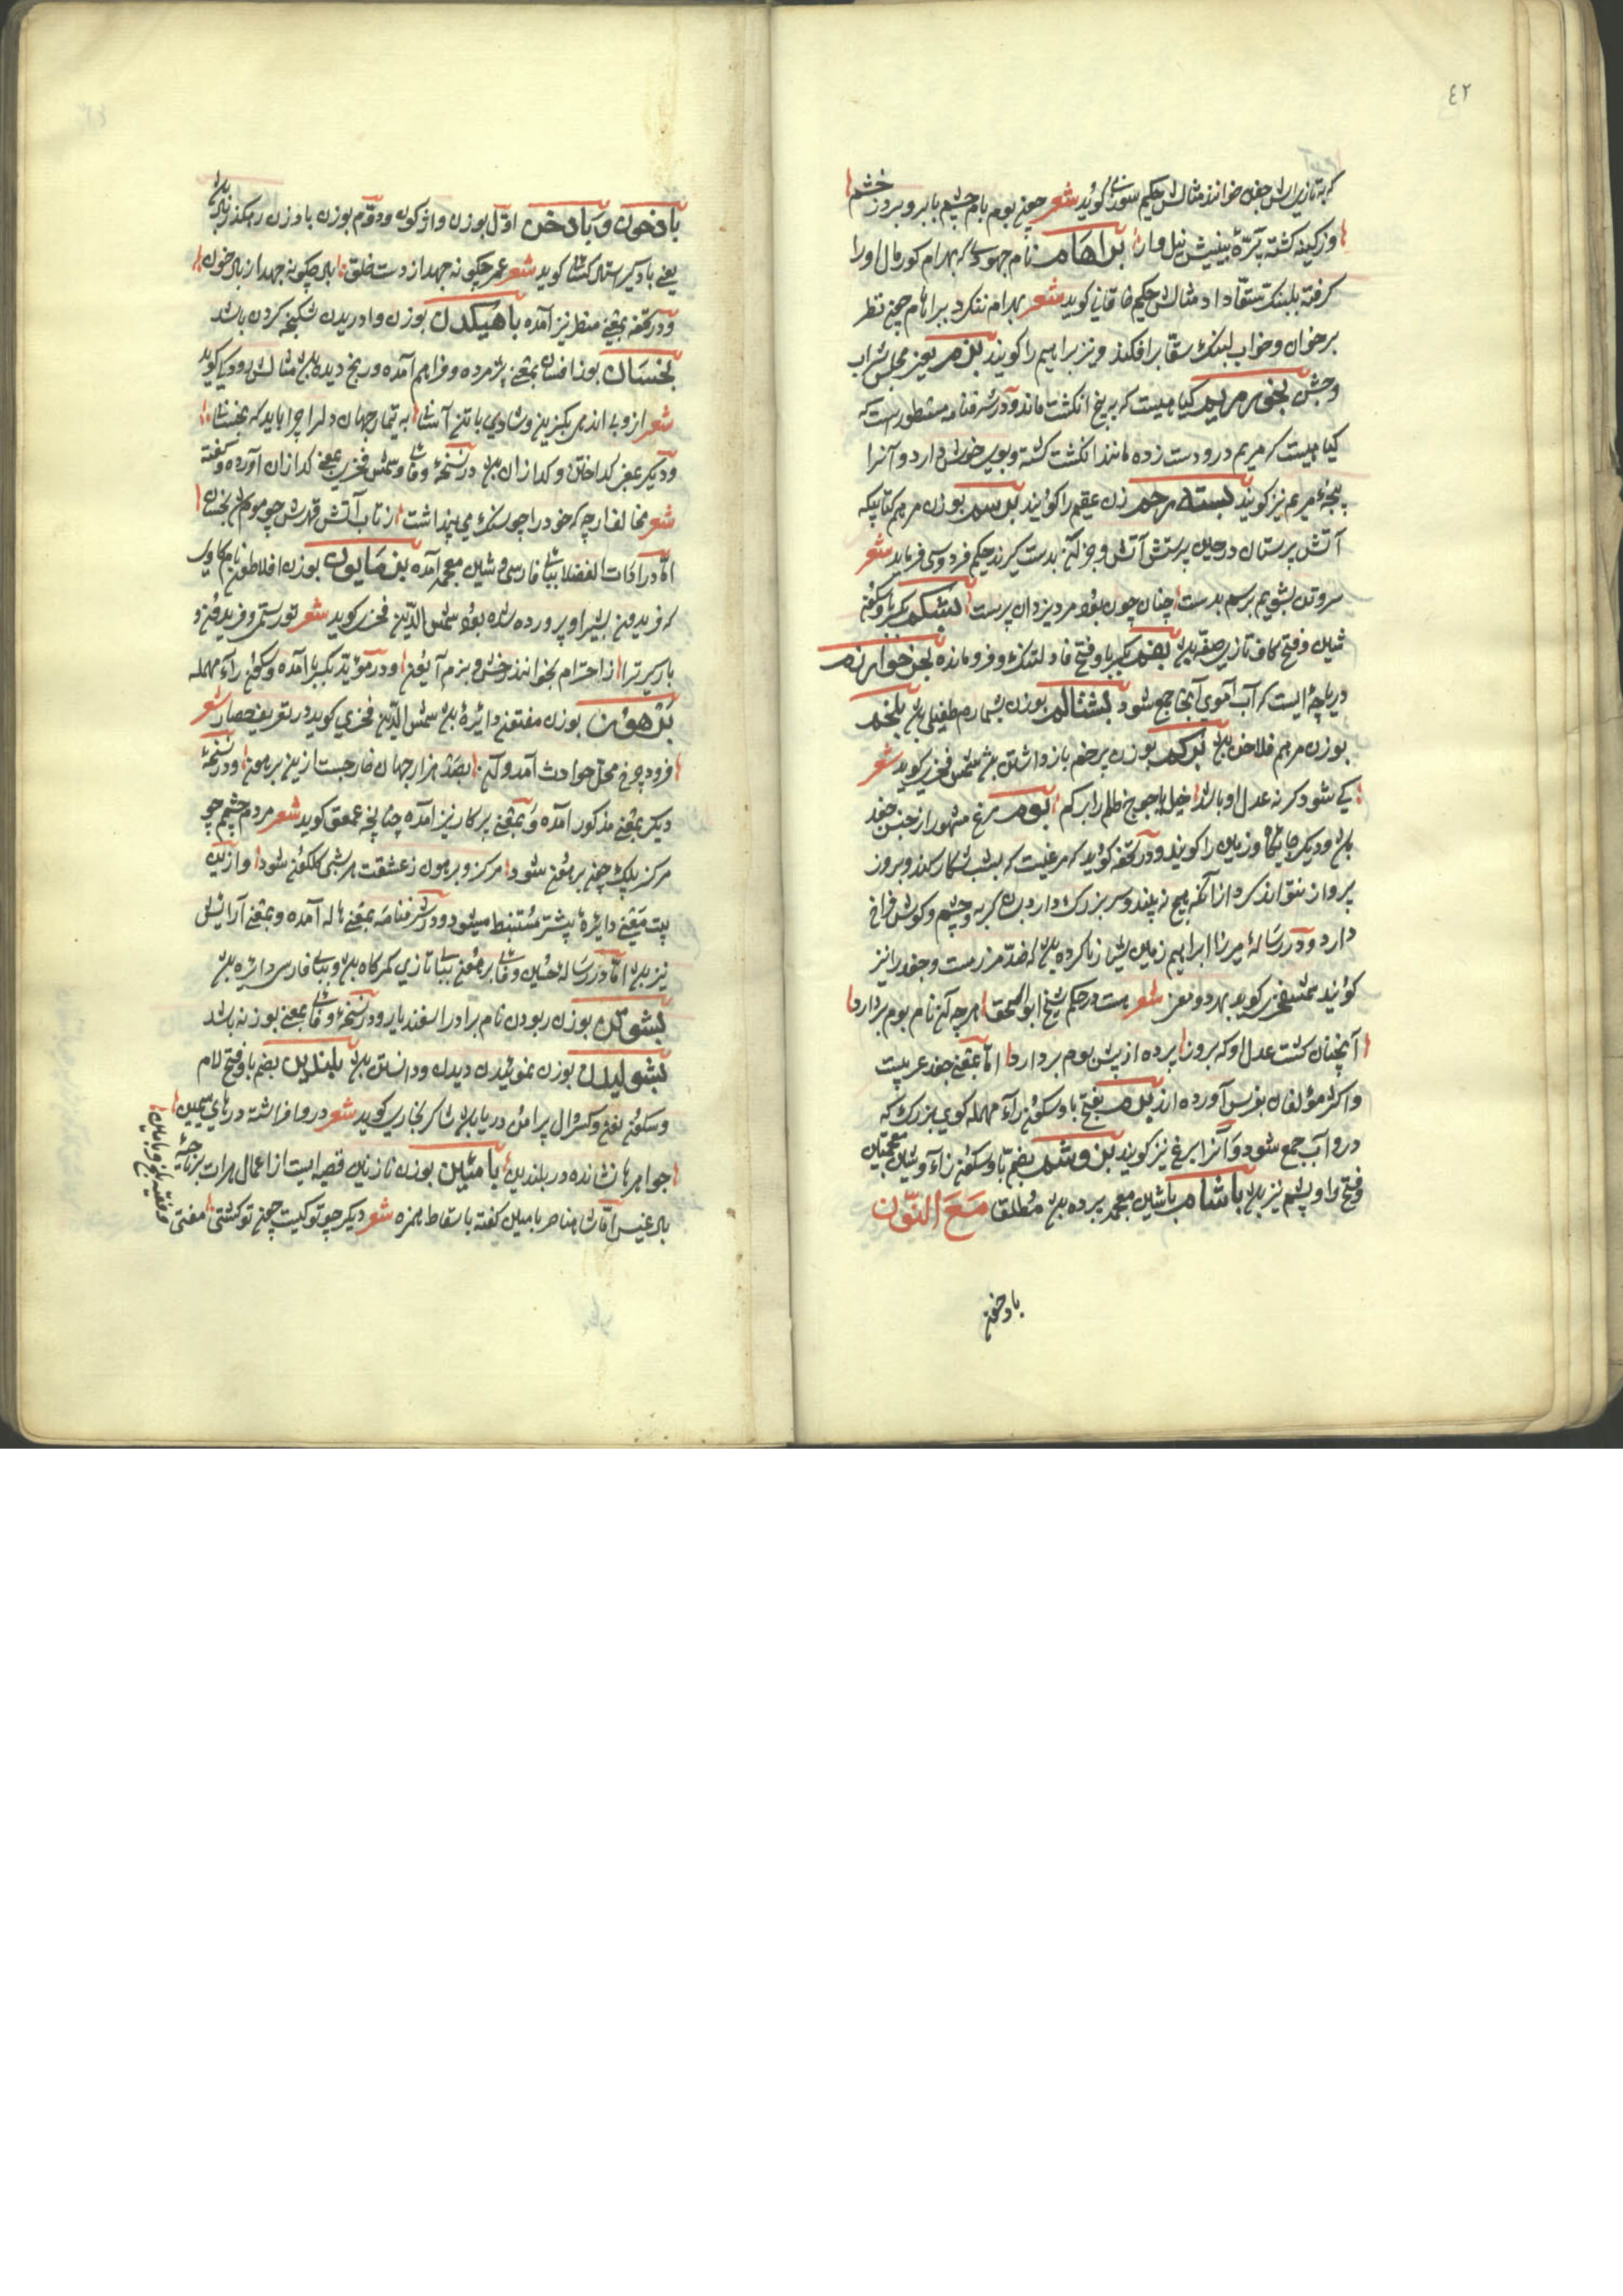 ٤٢
که بتازیش جغد خوانند مثالش حکیم سوزنی گوید شعر چون بوم بام چشم بابرو برد ز خشم
وز کینه گشته پرّهٔ بینیش نیل وار براهام نام جهودی که بهرام کور مال او را
گرفته بلنبک سقّا داد مثالش حکیم خاقانی گوید شعر بهرام ننگرد ببراهام چون نظر
بر خوان و خواب لنبک سقّا برافکند و نیز براهیم را گویند بزم یعنی مجلس شراب
و جشن بخور مریم گیاهیست که به پنج انگشت ماند و در شرفنامه مسطورست که
گیاهیست که مریم درو دست زده مانند انگشت گشته و بوی خوش دارد و آنرا
پنجهٔ مریم نیز گویند بسته رحم زن عقیم را گویند برسم بوزن مرهم کتابیکه
آتش پرستان در حین پرستش آتش و جز آن بدست گیرند حکیم فردوسی فرماید شعر
سر و تن بشویم برسم بدست چنان چون بود مرد یزدان پرست بشکم بکسر با و سکون
شین و فتح کاف تازی صفه بزم بکسر با و فتح فا دلتنگ و فرومانده بحر خوارزم
دریاچهٔ ایست که آب آموی آنجا جمع شود بشنالم بوزن بشمارم طفیلی بلخم
بوزن مرهم فلاخن برکم بوزن پرخم بازداشتن شمس فخری گوید شعر
کی شود گرنه عدل او باشد خیل یاجوج ظلم را برکم بوم مرغ مشهور از جنس جغد
و دیگر جایگاه و زمین را گویند و در تحفه گوید که مرغیست که بشب شکار کند و بروز
پرواز نتواند کرد از آنکه هیچ نه بیند و سر بزرگ دارد گربه و چشم و گوش فراخ
دارد و در رسالهٔ میرزا ابراهیم زمین شیار ناکرده که ضدّ مرزست و جغد را نیز
گویند شمس فخری گوید بهر دو معنی شعر هست در حکم شیخ ابو اسحق هرچه آن نام بوم بردارد
آنچنان گشت عدل او که بروز پرده از پیش بوم بردارد امّا بمعنی جغد عربیست
و اکثر مؤلفان بفرس آورده اند برم بفتح با و سکون راء مهمله گوی بزرگ که
درو آب جمع شود و آنرا برغ نیز گویند بزوشم بضم با و سکون زاء و شین معجمتین
و فتح واو پشم نیز باشام با شین معجمه پرده مطلقا مَعَ النّون
بادخون
بادخون و بادخن اوّل بوزن واژگون و دوّم بوزن بادزن رهگذر باد
یعنی بادگیر استاد کسائی گوید شعر عمر چگونه جهد از دست خلق باد چگونه جهد از بادخون
و در تحفه بمعنی منظر نیز آمده باهیکدن بوزن وادریدن شکنجه کردن باشد
بخسان بوزن افسان بمعنی پژمرده و فراهم آمده و رنج دیده مثالش رودکی گوید
شعر ازو بی اندهی بگزین و شادی با تن آسانی به تیمار جهان دلرا چرا باید که بخسانی
و دیگر بمعنی گداختن و گدازان در نسخهٔ وفائی و شمس فخری بمعنی گدازان آورده و گفته
شعر مخالف ارچه که خود را چو سنگ می پنداشت ز تاب آتش قهرش چو موم بخسان
امّا در ادات الفضلا ببای فارسی و شین معجمه آمده برمایون بوزن افلاطون نام گاوی
که فریدون بشیر او پرورده شده بود شمس الدّین فخری گوید شعر تو رستمی و فریدون و
بارگیر ترا از احترام بخوانند رخش و بزم آیون و در مؤید بکسر با آمده و سکون راء مهمله
برهون بوزن مفتون دایرهٔ شمس الدّین فخری گوید در تعریف حصار شعر
فرود چرخ محل حوادث آمد و آن بصد هزار جهان خارجست ازین برهون و در نسخهٔ
دیگر بمعنی مذکور آمده و بمعنی پرگار نیز آمده چنانچه عمعق گوید شعر مردم چشم چو
مرکز پلک چون برهون شود مرکز و برهون ز عشقت هر شبی گلگون شود و ازین
بیت معنی دایره پیشتر مستنبط میشود و در شرفنامه بمعنی هاله آمده و بمعنی آرایش
نیز امّا در رسالهٔ حسین وفائی برهون ببای تازی کمرگاه و ببای فارسی دایره
بشوتن بوزن ربودن نام برادر اسفندیار و در نسخهٔ وفائی بمعنی بوزنه باشد
بشولیدن بوزن نمویدن دیدن و دانستن بلندین بضم با و فتح لام
و سکون نون و کسر دال پیرامن در شاکر بخاری گوید شعر در و افراشته درهای سیمین
جواهرها نشانده در بلندین بامئین بوزن نازنین قصبه ایست از اعمال هرات بناحیهٔ
بادغیس امّا شاه ناصر بامین گفته باسقاط همزه شعر دیگر چو تو کیست چون تو گشتی مفتی
و فقیه بلخ و بامین